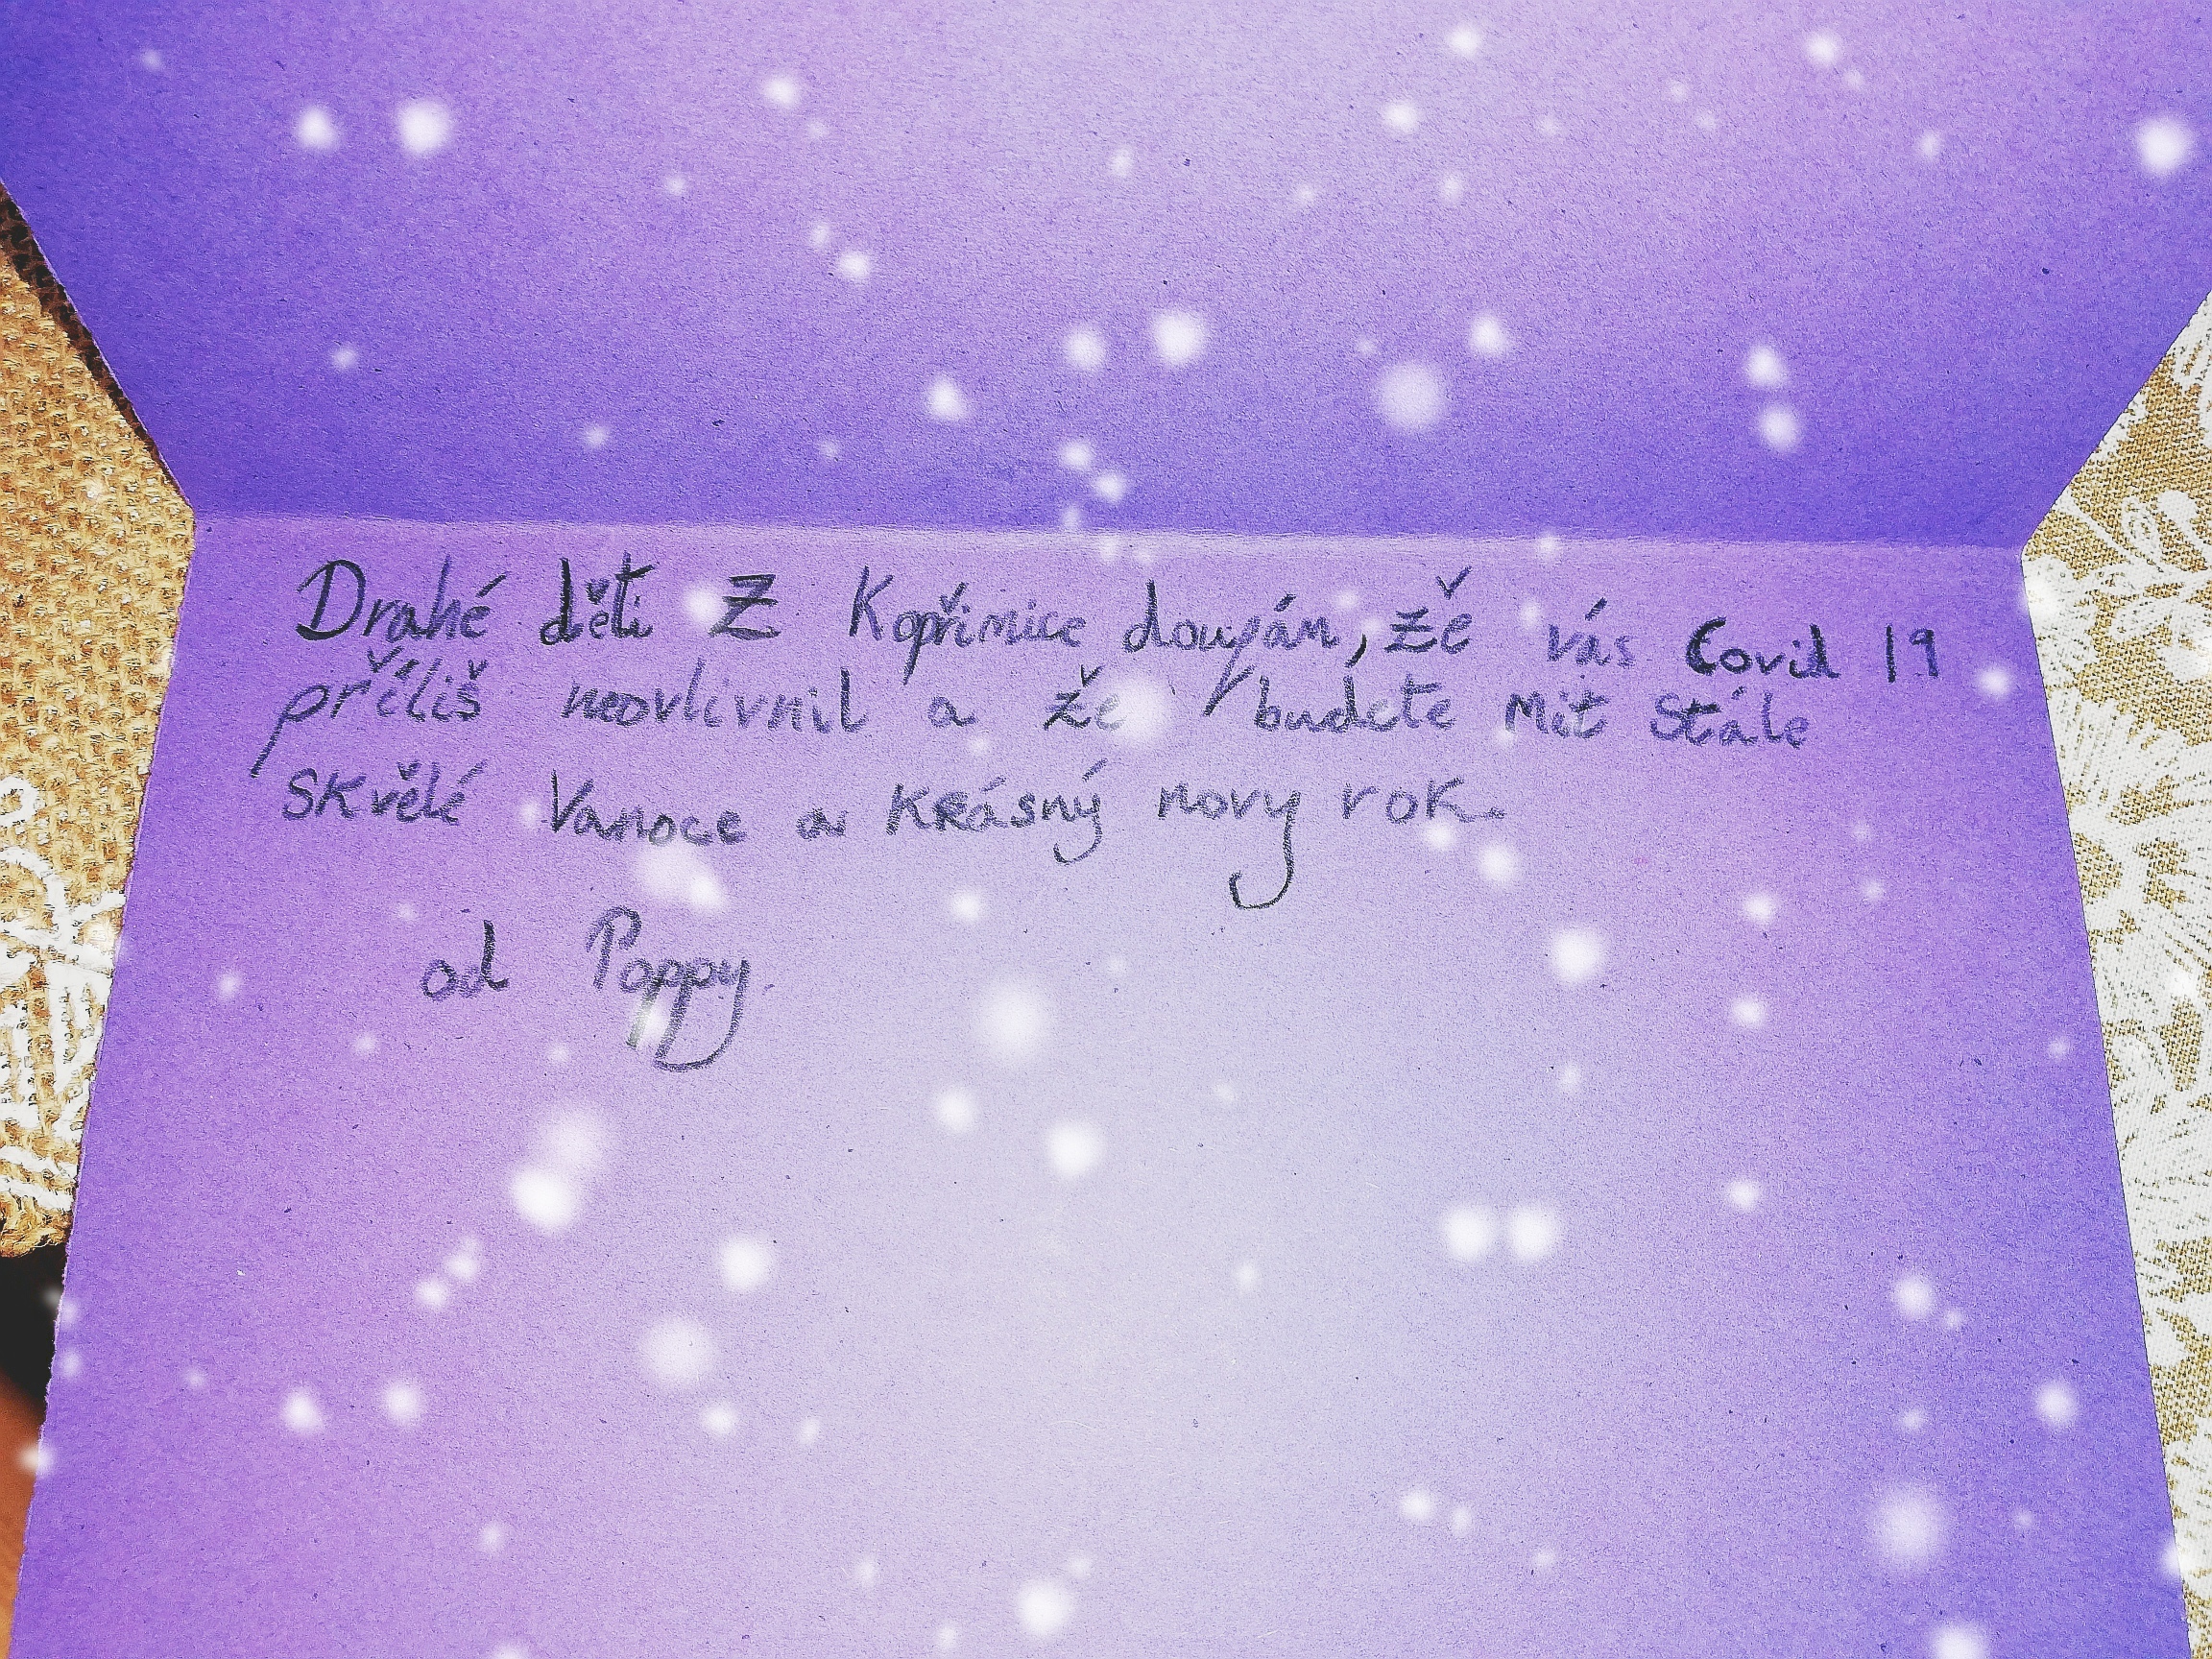 Drahé děti Z Kopřinice doufán, že vás Covid 19
příliš neovlivnil a že budete Mit Stále
Skvělé Vanoce a Krásný novy rok.
od Poppy.